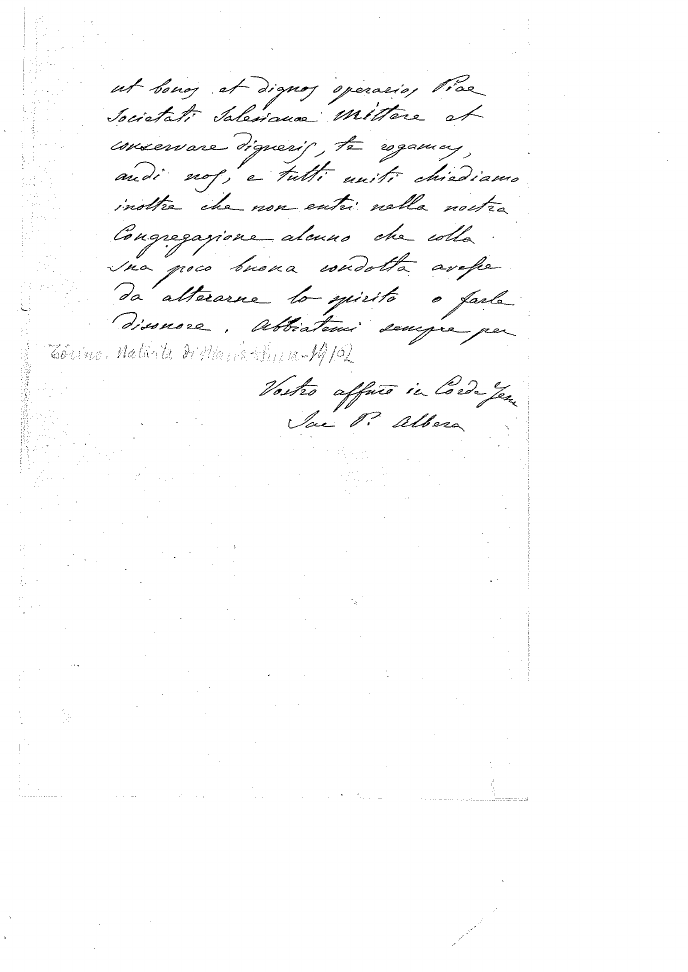 ut bonos et dignos operarios Piae
Societati Salesianae mittere et
conservare digneris, te rogamus,
audi nos, e tutti uniti chiediamo
inoltre che non entri nella nostra
Congregazione alcuno che colla
sua poco buona condotta avesse
da alterarne lo spirito o farle
disonore. Abbiatemi sempre per
Torino, Natività di Maria 19/02
Vostro affmo in Corde Jesu
Sac P. Albera